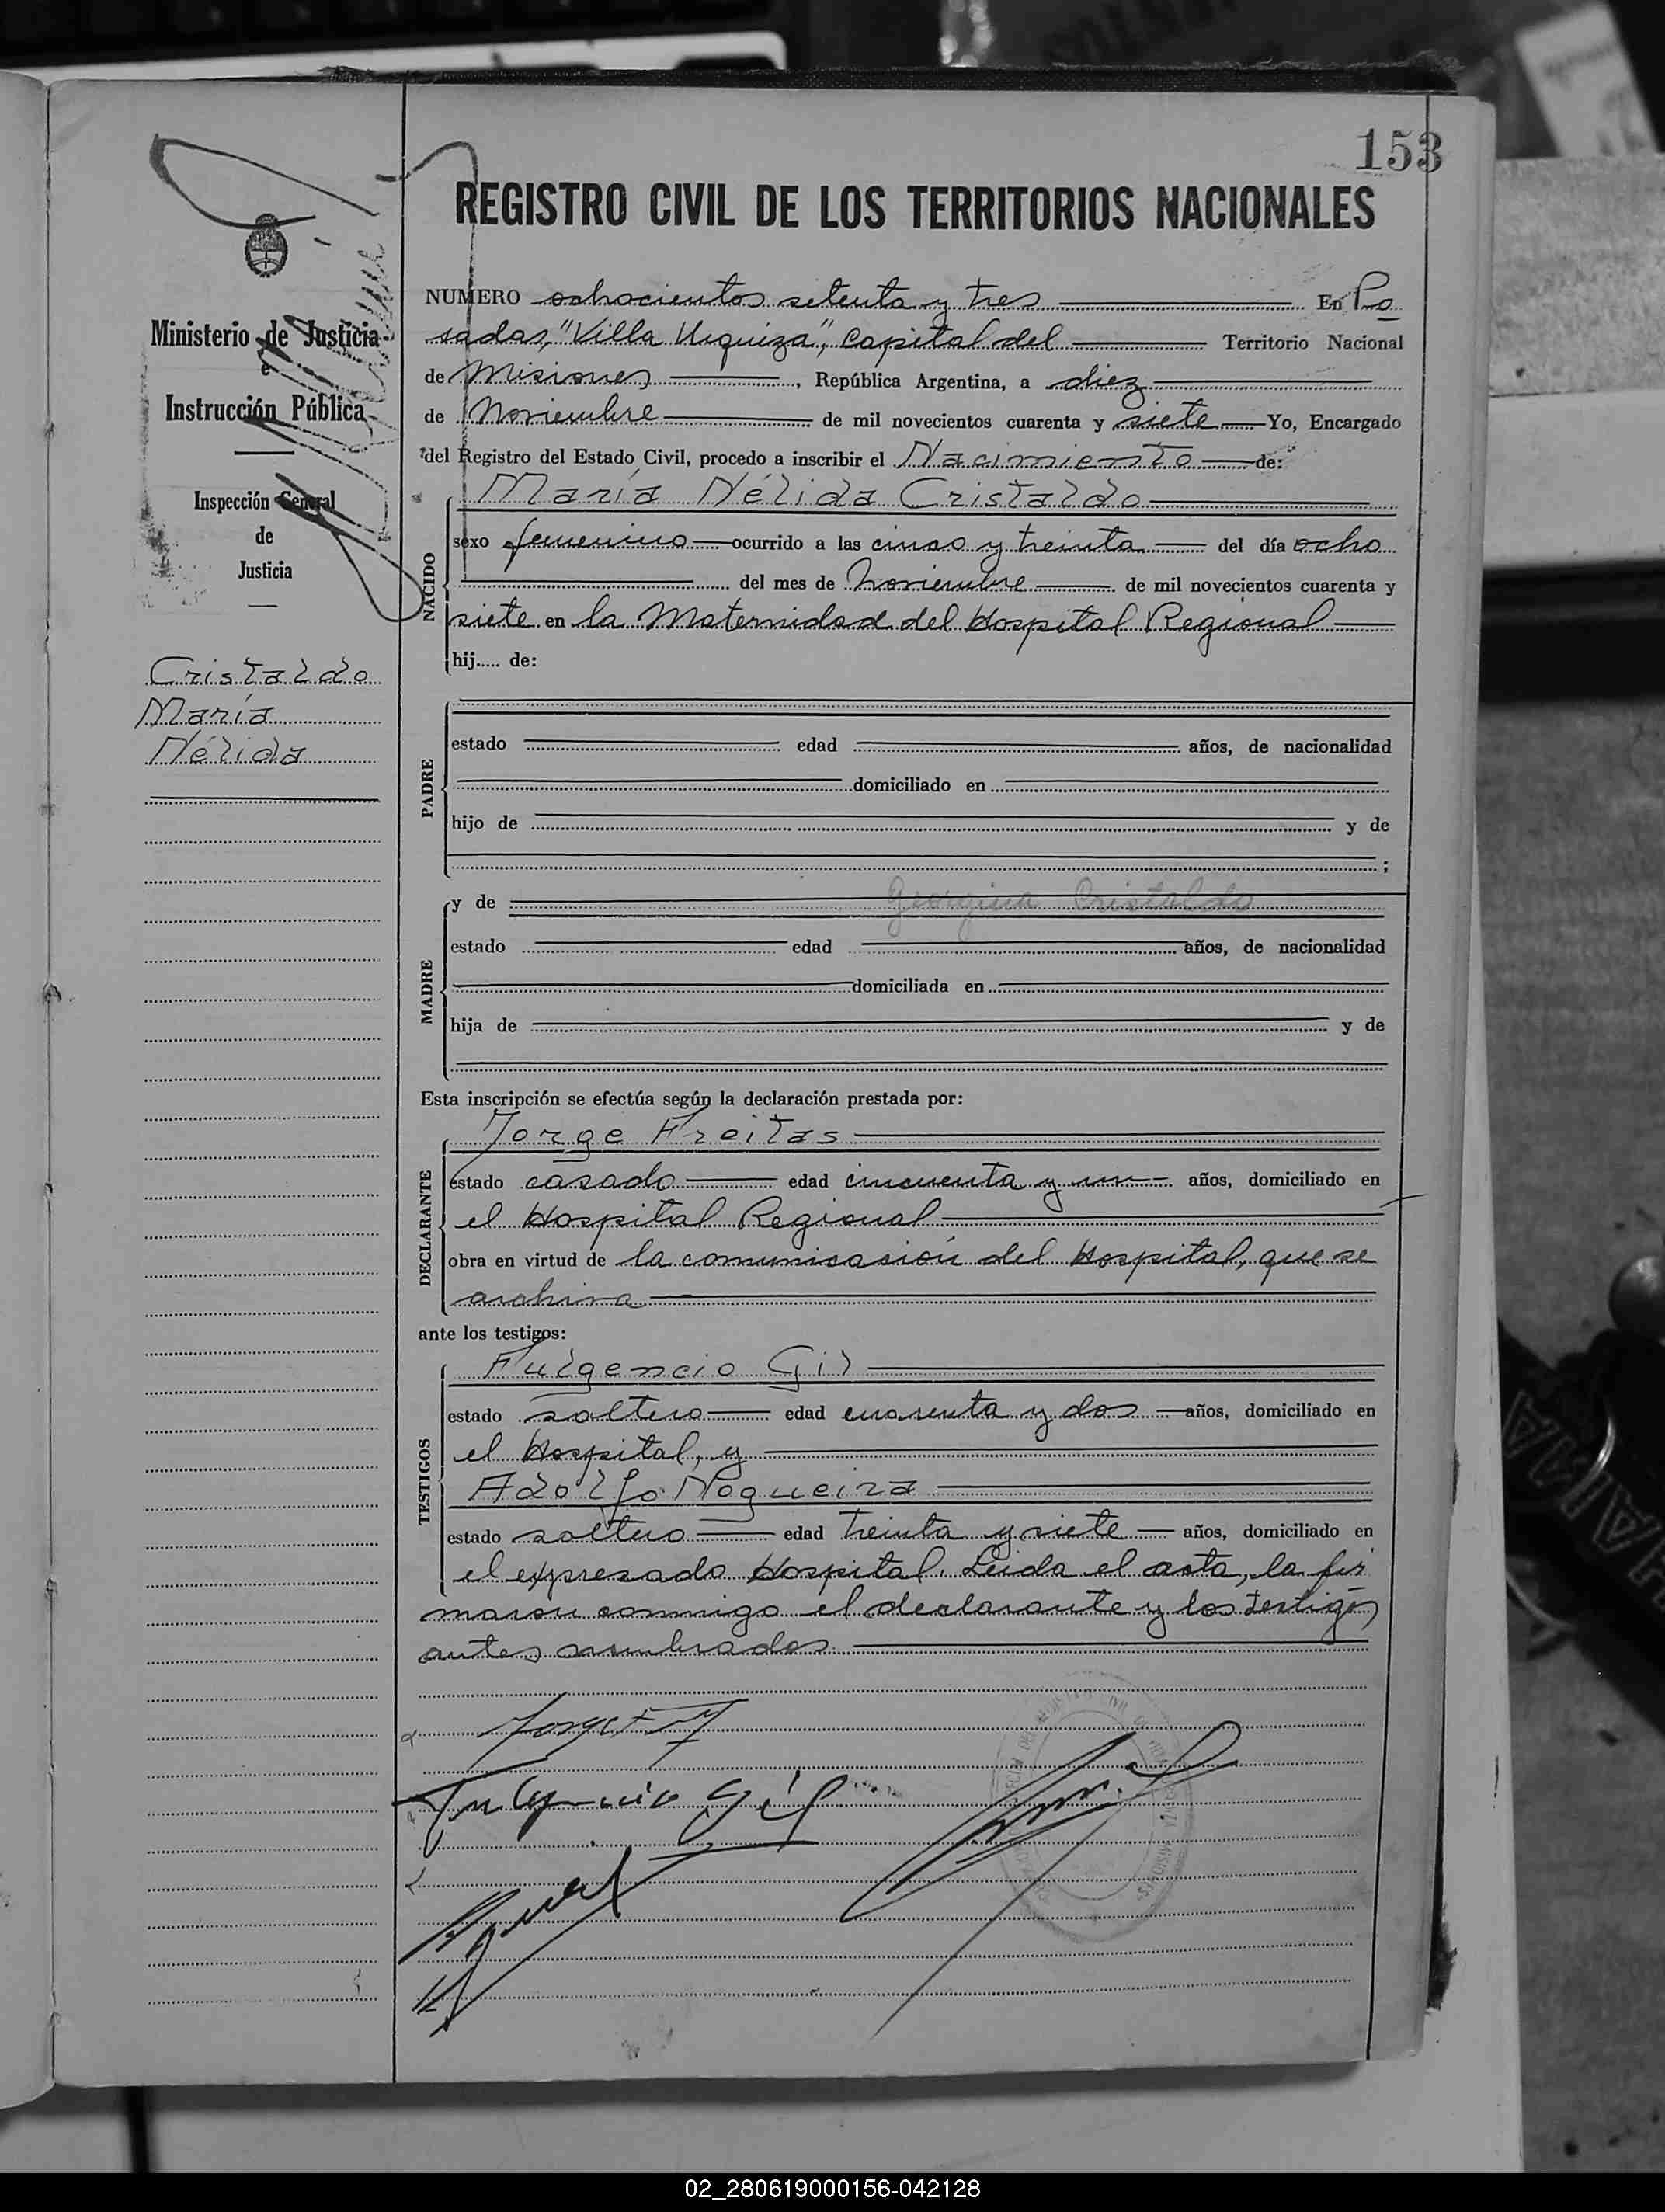 153
REGISTRO CIVIL DE LOS TERRITORIOS NACIONALES
Ministerio de Justicia
e
Instrucción Pública
Inspección General
de
Justicia
Cristaldo
María
Nélida
NUMERO ochocientos setenta y tres En Po
sadas, "Villa Urquiza", Capital del Territorio Nacional
de Misiones, República Argentina, a diez
de Noviembre de mil novecientos cuarenta y siete Yo, Encargado
del Registro del Estado Civil, procedo a inscribir el Nacimiento de:
NACIDO
María Nélida Cristaldo
sexo femenino ocurrido a las cinco y treinta del día ocho
del mes de Noviembre de mil novecientos cuarenta y
siete en la Maternidad del Hospital Regional
hij..... de:
PADRE
estado edad años, de nacionalidad
domiciliado en
hijo de y de
;
MADRE
y de Georgina Cristaldo
estado edad años, de nacionalidad
domiciliada en
hija de y de
Esta inscripción se efectúa según la declaración prestada por:
DECLARANTE
Jorge Freitas
estado casado edad cincuenta y un años, domiciliado en
el Hospital Regional
obra en virtud de la comunicación del Hospital, que se
archiva
ante los testigos:
TESTIGOS
Fulgencio Gil
estado soltero edad cuarenta y dos años, domiciliado en
el Hospital, y
Adolfo Nogueira
estado soltero edad treinta y siete años, domiciliado en
el expresado Hospital. Leida el acta, la fir
maron conmigo el declarante y los testigos
antes nombrados
Jorge
Fulgencio Gil
REGISTRO CIVIL
MISIONES
02_280619000156-042128